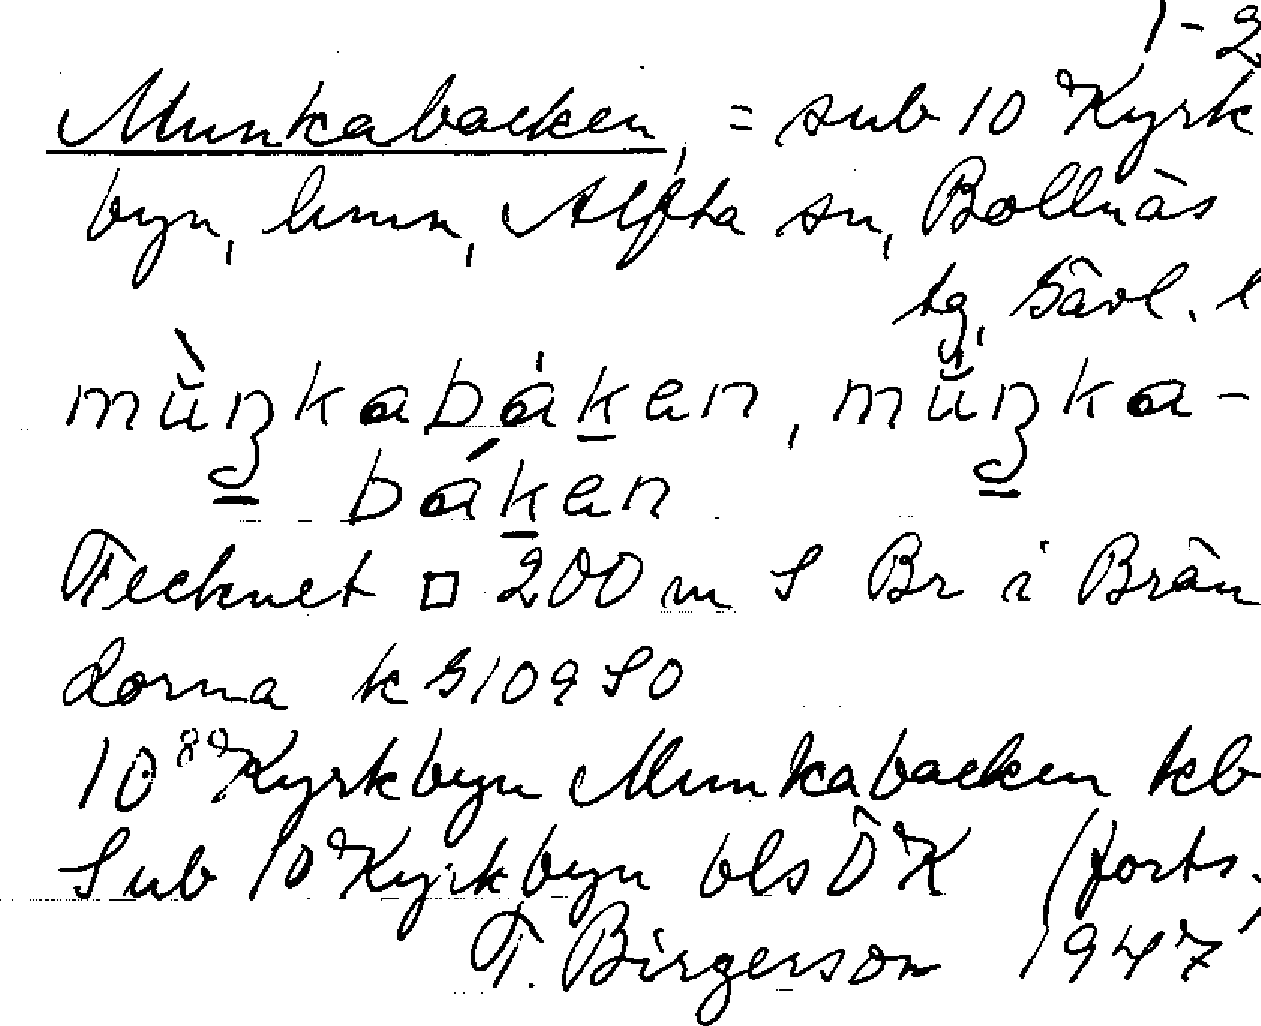 1-2
Munkabacken, = sub 10 Kyrk
byn, hmn, Alfta sn, Bollnäs
tg, Gävl. l
mùn̠kabák̠en, mún̠ka-
bák̠en
Tecknet □ 200 m S Br i Brän
dorna k G 109 SO
10⁸ Kyrkbyn Munkabacken kb
Sub 10 Kyrkbyn bls Ö K (forts.
T. Birgerson 1947